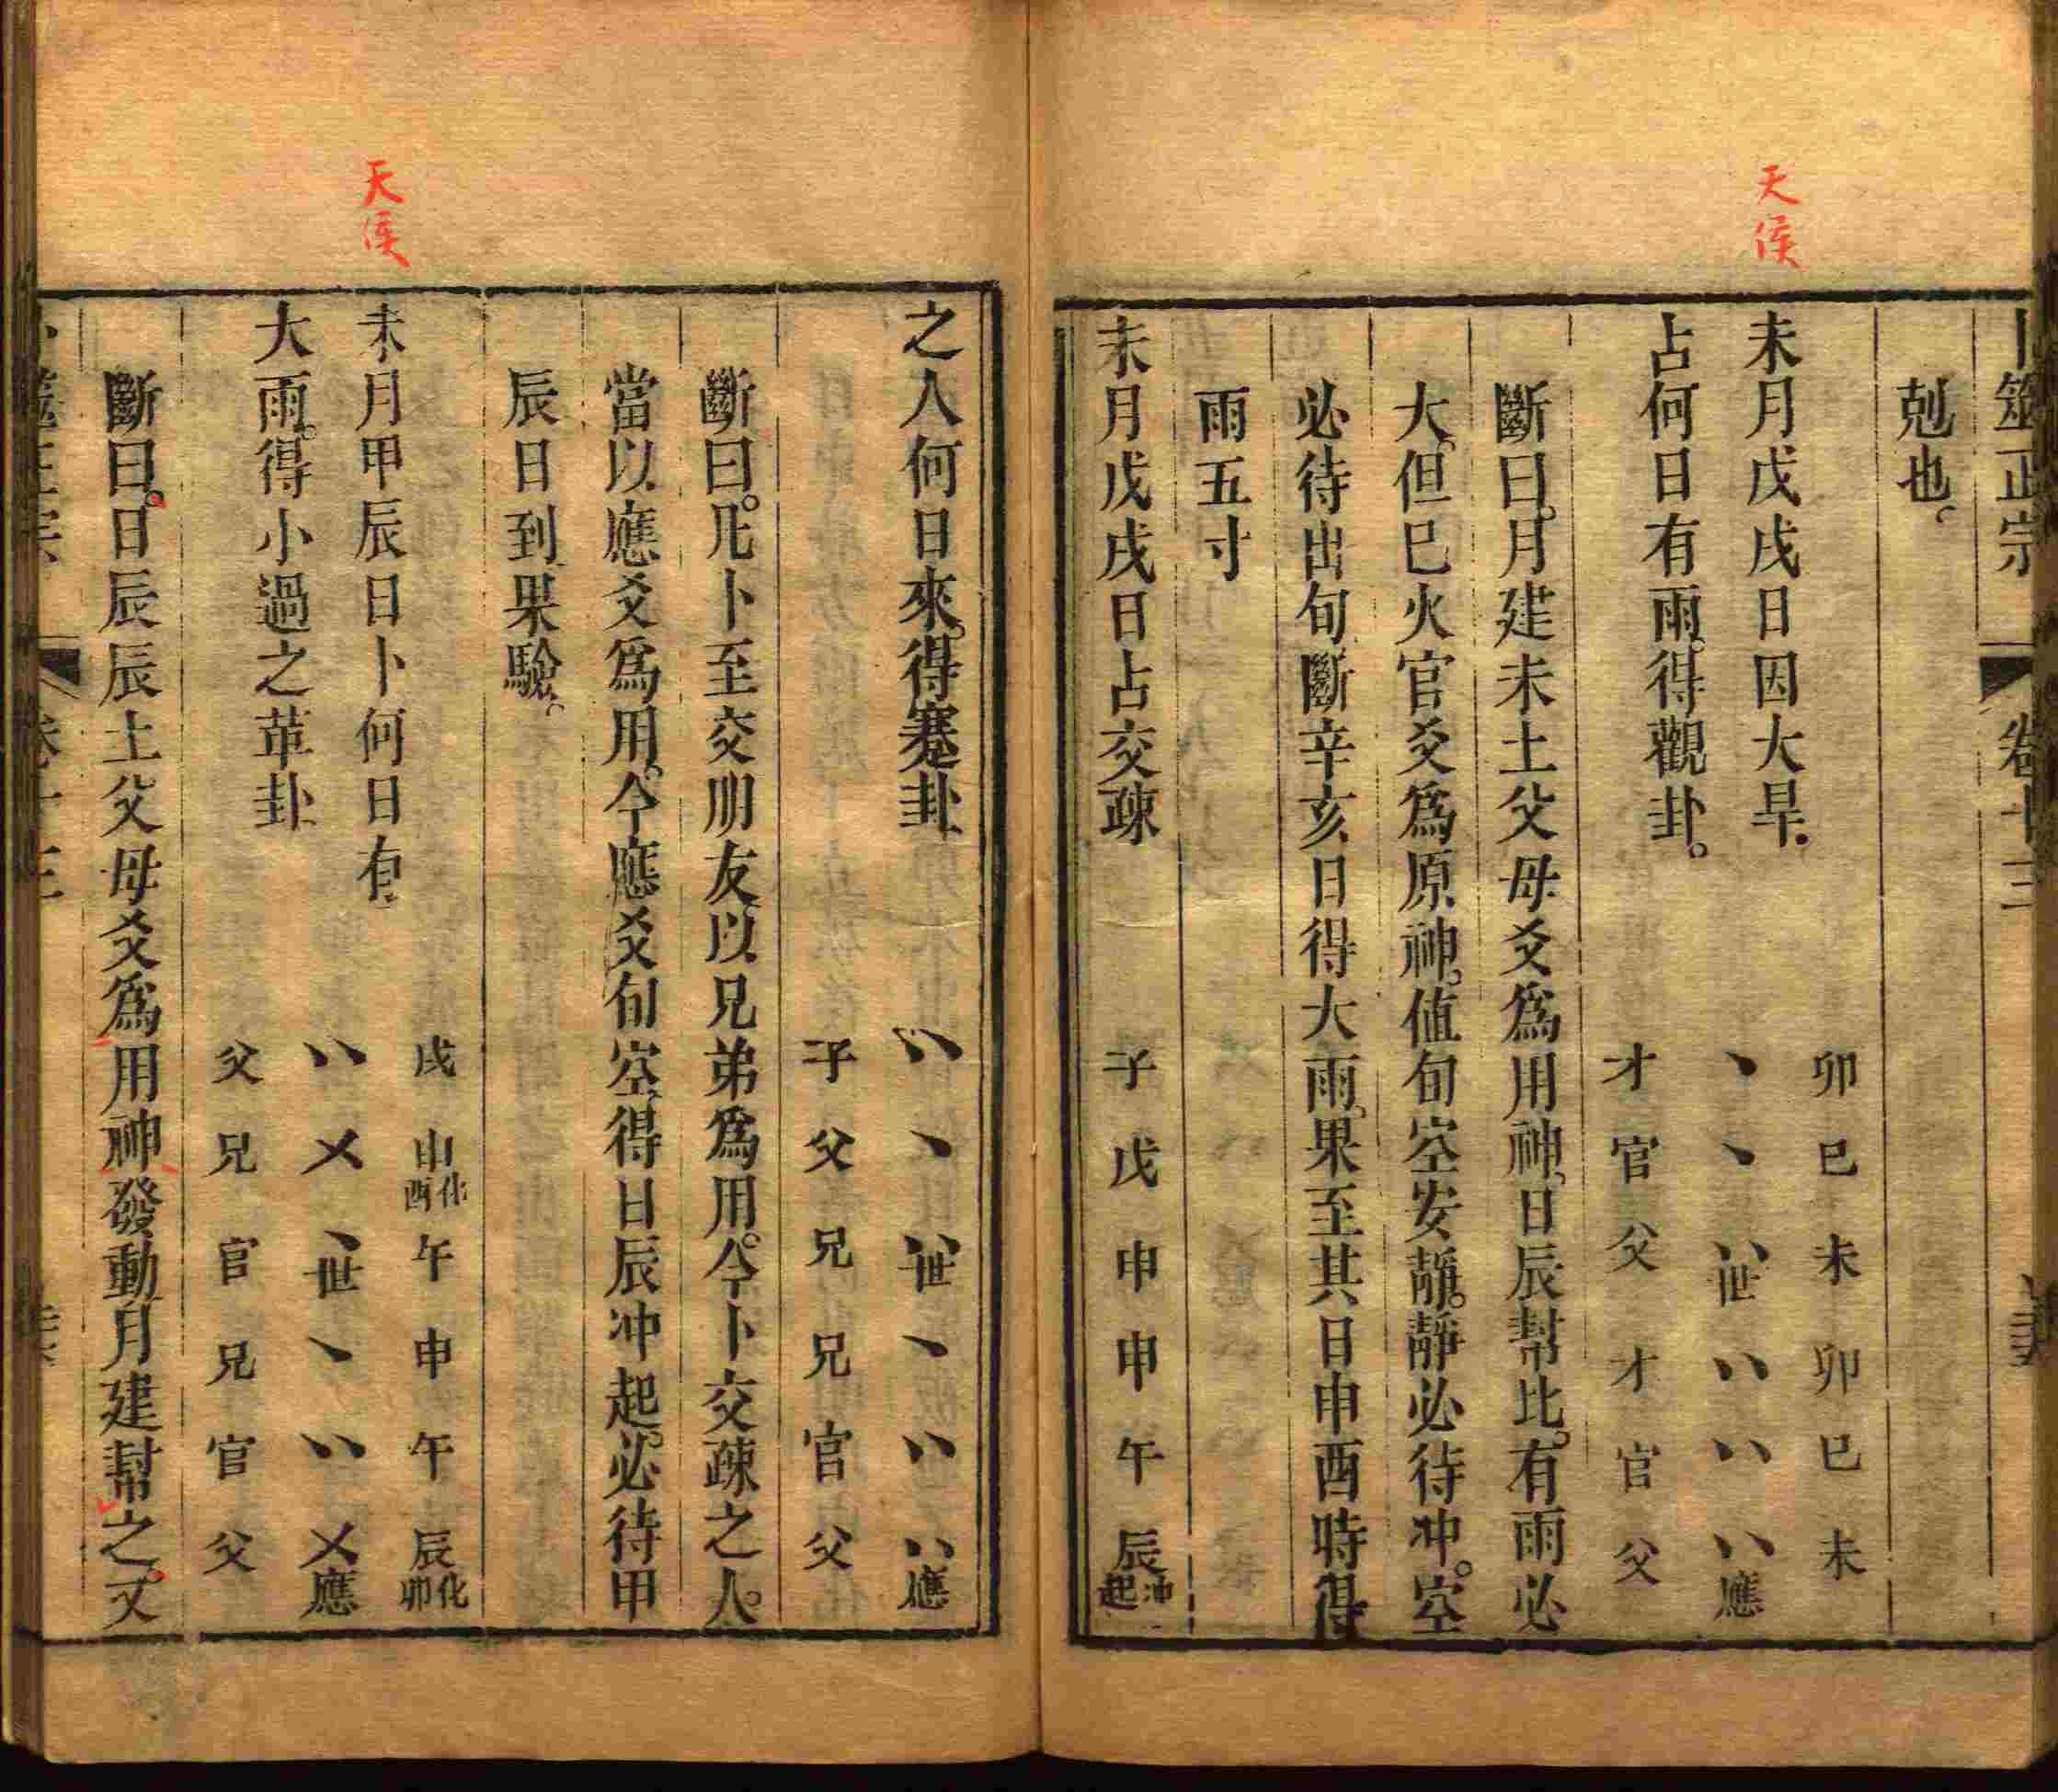 卜筮正宗 卷十三
剋也
天候
未月戊戌日因大旱
占何日有雨得觀卦
卯 巳 未 卯 巳 未
丶 丶 〃世 〃 〃 〃應
才 官 父 才 官 父
斷曰月建未土父母爻爲用神日辰幫比有雨必
大但巳火官爻爲原神值旬空安靜靜必待冲空
必待出旬斷辛亥日得大雨果至其日申酉時得
雨五寸
未月戊戌日占交疎
子 戊 申 申 午 辰冲起
之人何日來得蹇卦
〃 丶 〃世 丶 〃 〃應
子 父 兄 兄 官 父
斷曰凡卜至交朋友以兄弟爲用今卜交疎之人
當以應爻爲用今應爻旬空得日辰冲起必待甲
辰日到果驗
天候
未月甲辰日卜何日有
大雨得小過之革卦
戌 申化酉 午 申 午 辰化卯
〃 乂 丶世 丶 〃 乂應
父 兄 官 兄 官 父
斷曰日辰辰土父母爻爲用神發動月建幫之又